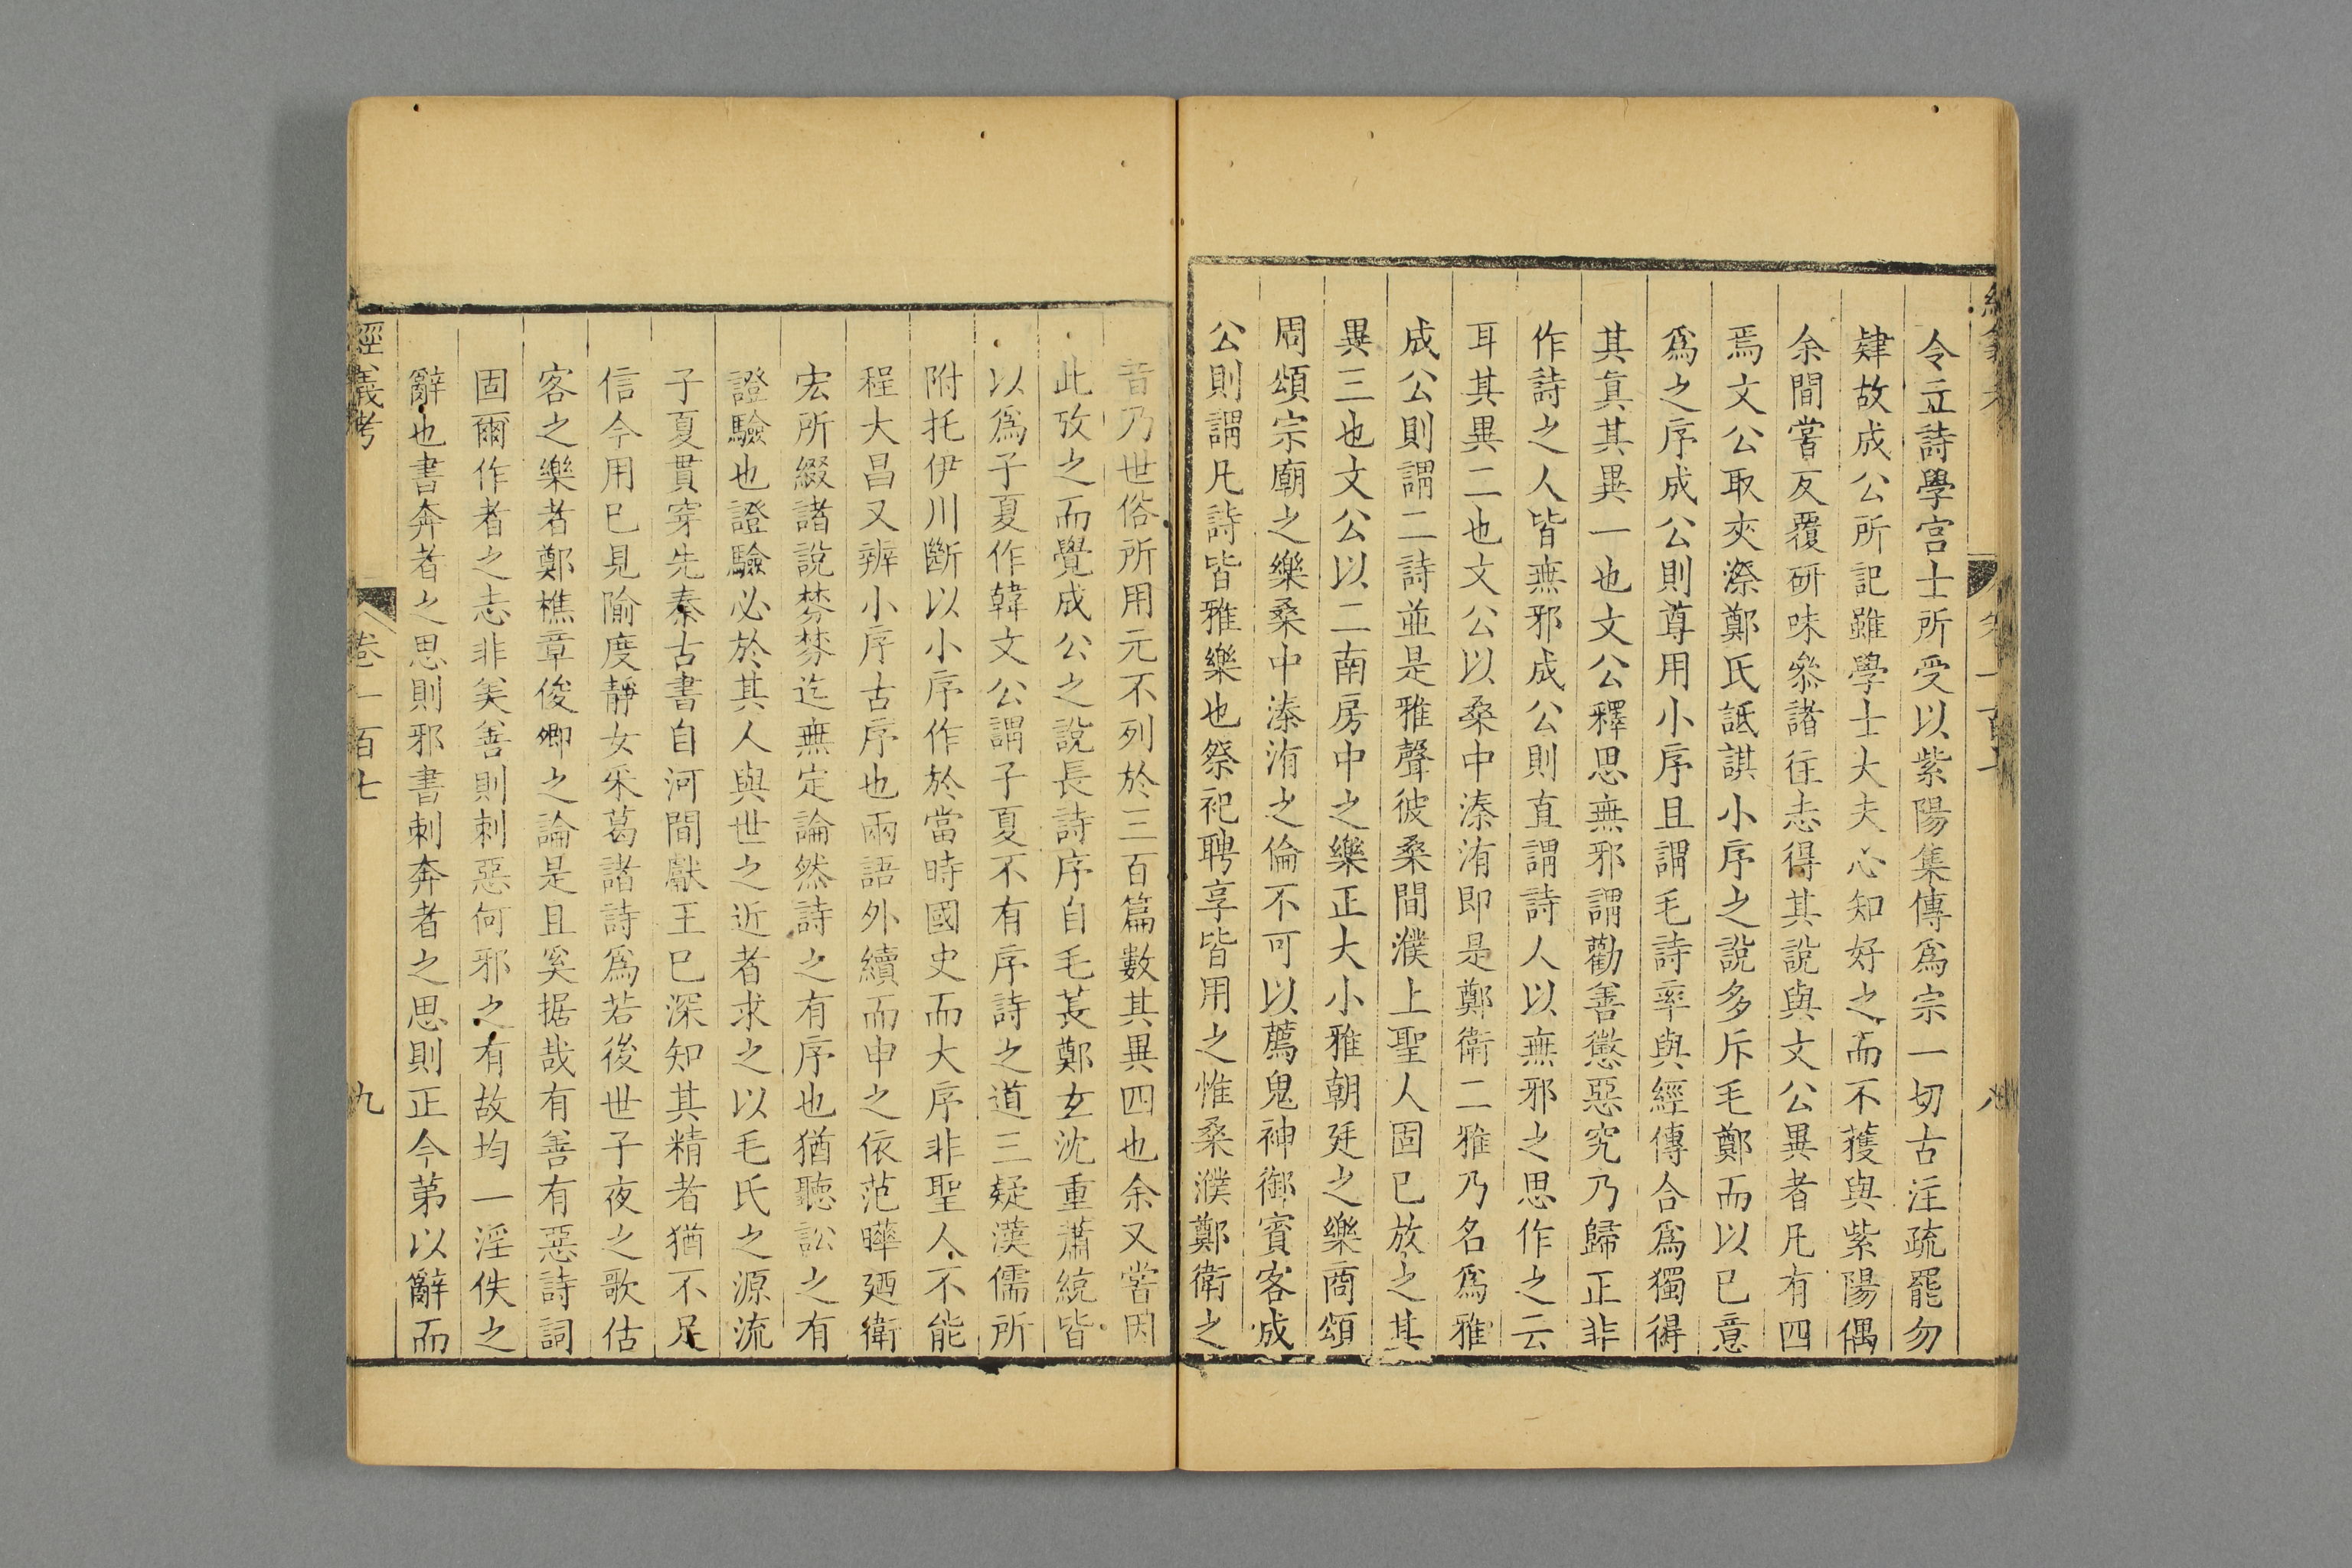 令立詩學宫士所受以紫陽集傳爲宗一切古注疏罷勿
肄故成公所記雖學士大夫心知好之而不獲與紫陽偶
余間嘗反覆研味叅諸徃志得其說與文公異者凡有四
焉文公取夾漈鄭氏詆諆小序之說多斥毛鄭而以已意
爲之序成公則尊用小序且謂毛詩率與經傳合爲獨得
其眞其異一也文公釋思無邪謂勸善懲惡究乃歸正非
作詩之人皆無邪成公則直謂詩人以無邪之思作之云
耳其異二也文公以桑中溱洧即是鄭衛二雅乃名爲雅
成公則謂二詩並是雅聲彼桑間濮上聖人固已放之其
異三也文公以二南房中之樂正大小雅朝廷之樂商頌
周頌宗廟之樂桑中溱洧之倫不可以薦鬼神御賓客成
公則謂凡詩皆雅樂也祭祀聘享皆用之惟桑濮鄭衛之
音乃世俗所用元不列於三百篇數其異四也余又嘗因
此攷之而覺成公之說長詩序自毛萇鄭玄沈重蕭統皆
以爲子夏作韓文公謂子夏不有序詩之道三疑漢儒所
附托伊川斷以小序作於當時國史而大序非聖人不能
程大昌又辨小序古序也兩語外續而申之依范曄廼衛
宏所綴諸說棼棼迄無定論然詩之有序也猶聽訟之有
證驗也證驗必於其人與世之近者求之以毛氏之源流
子夏貫穿先秦古書自河間獻王已深知其精者猶不足
信今用已見隃度靜女采葛諸詩爲若後世子夜之歌估
客之樂者鄭樵章俊卿之論是且奚据哉有善有惡詩詞
固爾作者之志非美善則刺惡何邪之有故均一淫佚之
辭也書奔者之思則邪書刺奔者之思則正今第以辭而
經義考 卷一百七 九